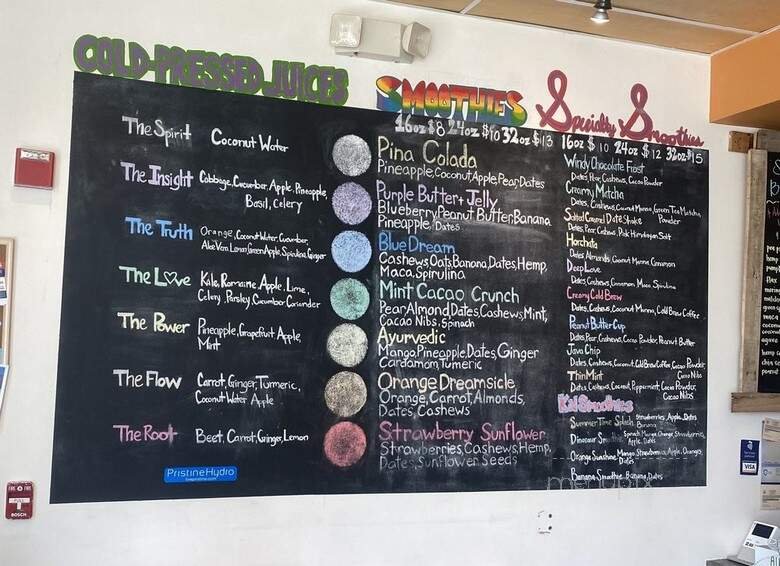 COLD-PRESSED JUICES
The Spirit Coconut Water
The Insight Cabbage, Cucumber, Apple, Pineapple,
Basil, Celery
The Truth Orange, Coconut Water, Cucumber,
Aloe Vera, Lemon, Green Apple, Spirulina, Ginger
The Love Kale, Romaine, Apple, Lime,
Celery, Parsley, Cucumber, Coriander
The Power Pineapple, Grapefruit, Apple,
Mint
The Flow Carrot, Ginger, Turmeric,
Coconut Water, Apple
The Root Beet, Carrot, Ginger, Lemon
PristineHydro
SMOOTHIES
16oz $8 24oz $10 32oz $13
Pina Colada
Pineapple, Coconut, Apple, Pear, Dates
Purple Butter + Jelly
Blueberry, Peanut Butter, Banana
Pineapple, Dates
Blue Dream
Cashews, Oats, Banana, Dates, Hemp,
Maca, Spirulina
Mint Cacao Crunch
Pear, Almond, Dates, Cashews, Mint,
Cacao Nibs, Spinach
Ayurvedic
Mango, Pineapple, Dates, Ginger
Cardamom, Tumeric
Orange Dreamsicle
Orange, Carrot, Almonds,
Dates, Cashews
Strawberry Sunflower
Strawberries, Cashews, Hemp,
Dates, Sunflower Seeds
Specialty Smoothies
16oz $10 24oz $12 32oz $15
Windy Chocolate Frost
Dates, Pear, Cashews, Cacao Powder
Creamy Matcha
Dates, Cashews, Coconut Manna, Green Tea Matcha
Powder
Salted Caramel Date Shake
Dates, Pear, Cashews, Pink Himalayan Salt
Horchata
Dates, Almonds, Coconut Manna, Cinnamon
Deep Love
Dates, Cashews, Cinnamon, Maca, Spirulina
Creamy Cold Brew
Dates, Cashews, Coconut Manna, Cold Brew Coffee
Peanut Butter Cup
Dates, Pear, Cashews, Cacao Powder, Peanut Butter
Java Chip
Dates, Cashews, Coconut, Cold Brew Coffee, Cacao Powder,
Cacao Nibs
Thin Mint
Dates, Cashews, Coconut, Peppermint, Cacao Powder,
Cacao Nibs
Kid Smoothies
Summer Time Splash Strawberries, Apple, Dates
Banana
Dinosaur Smoothie Spinach, Mango, Orange, Strawberries,
Apple, Dates
Orange Sunshine Mango, Strawberries, Apple, Oranges,
Dates
Banana Smoothie Banana, Dates
FIRE
BOSCH
VISA